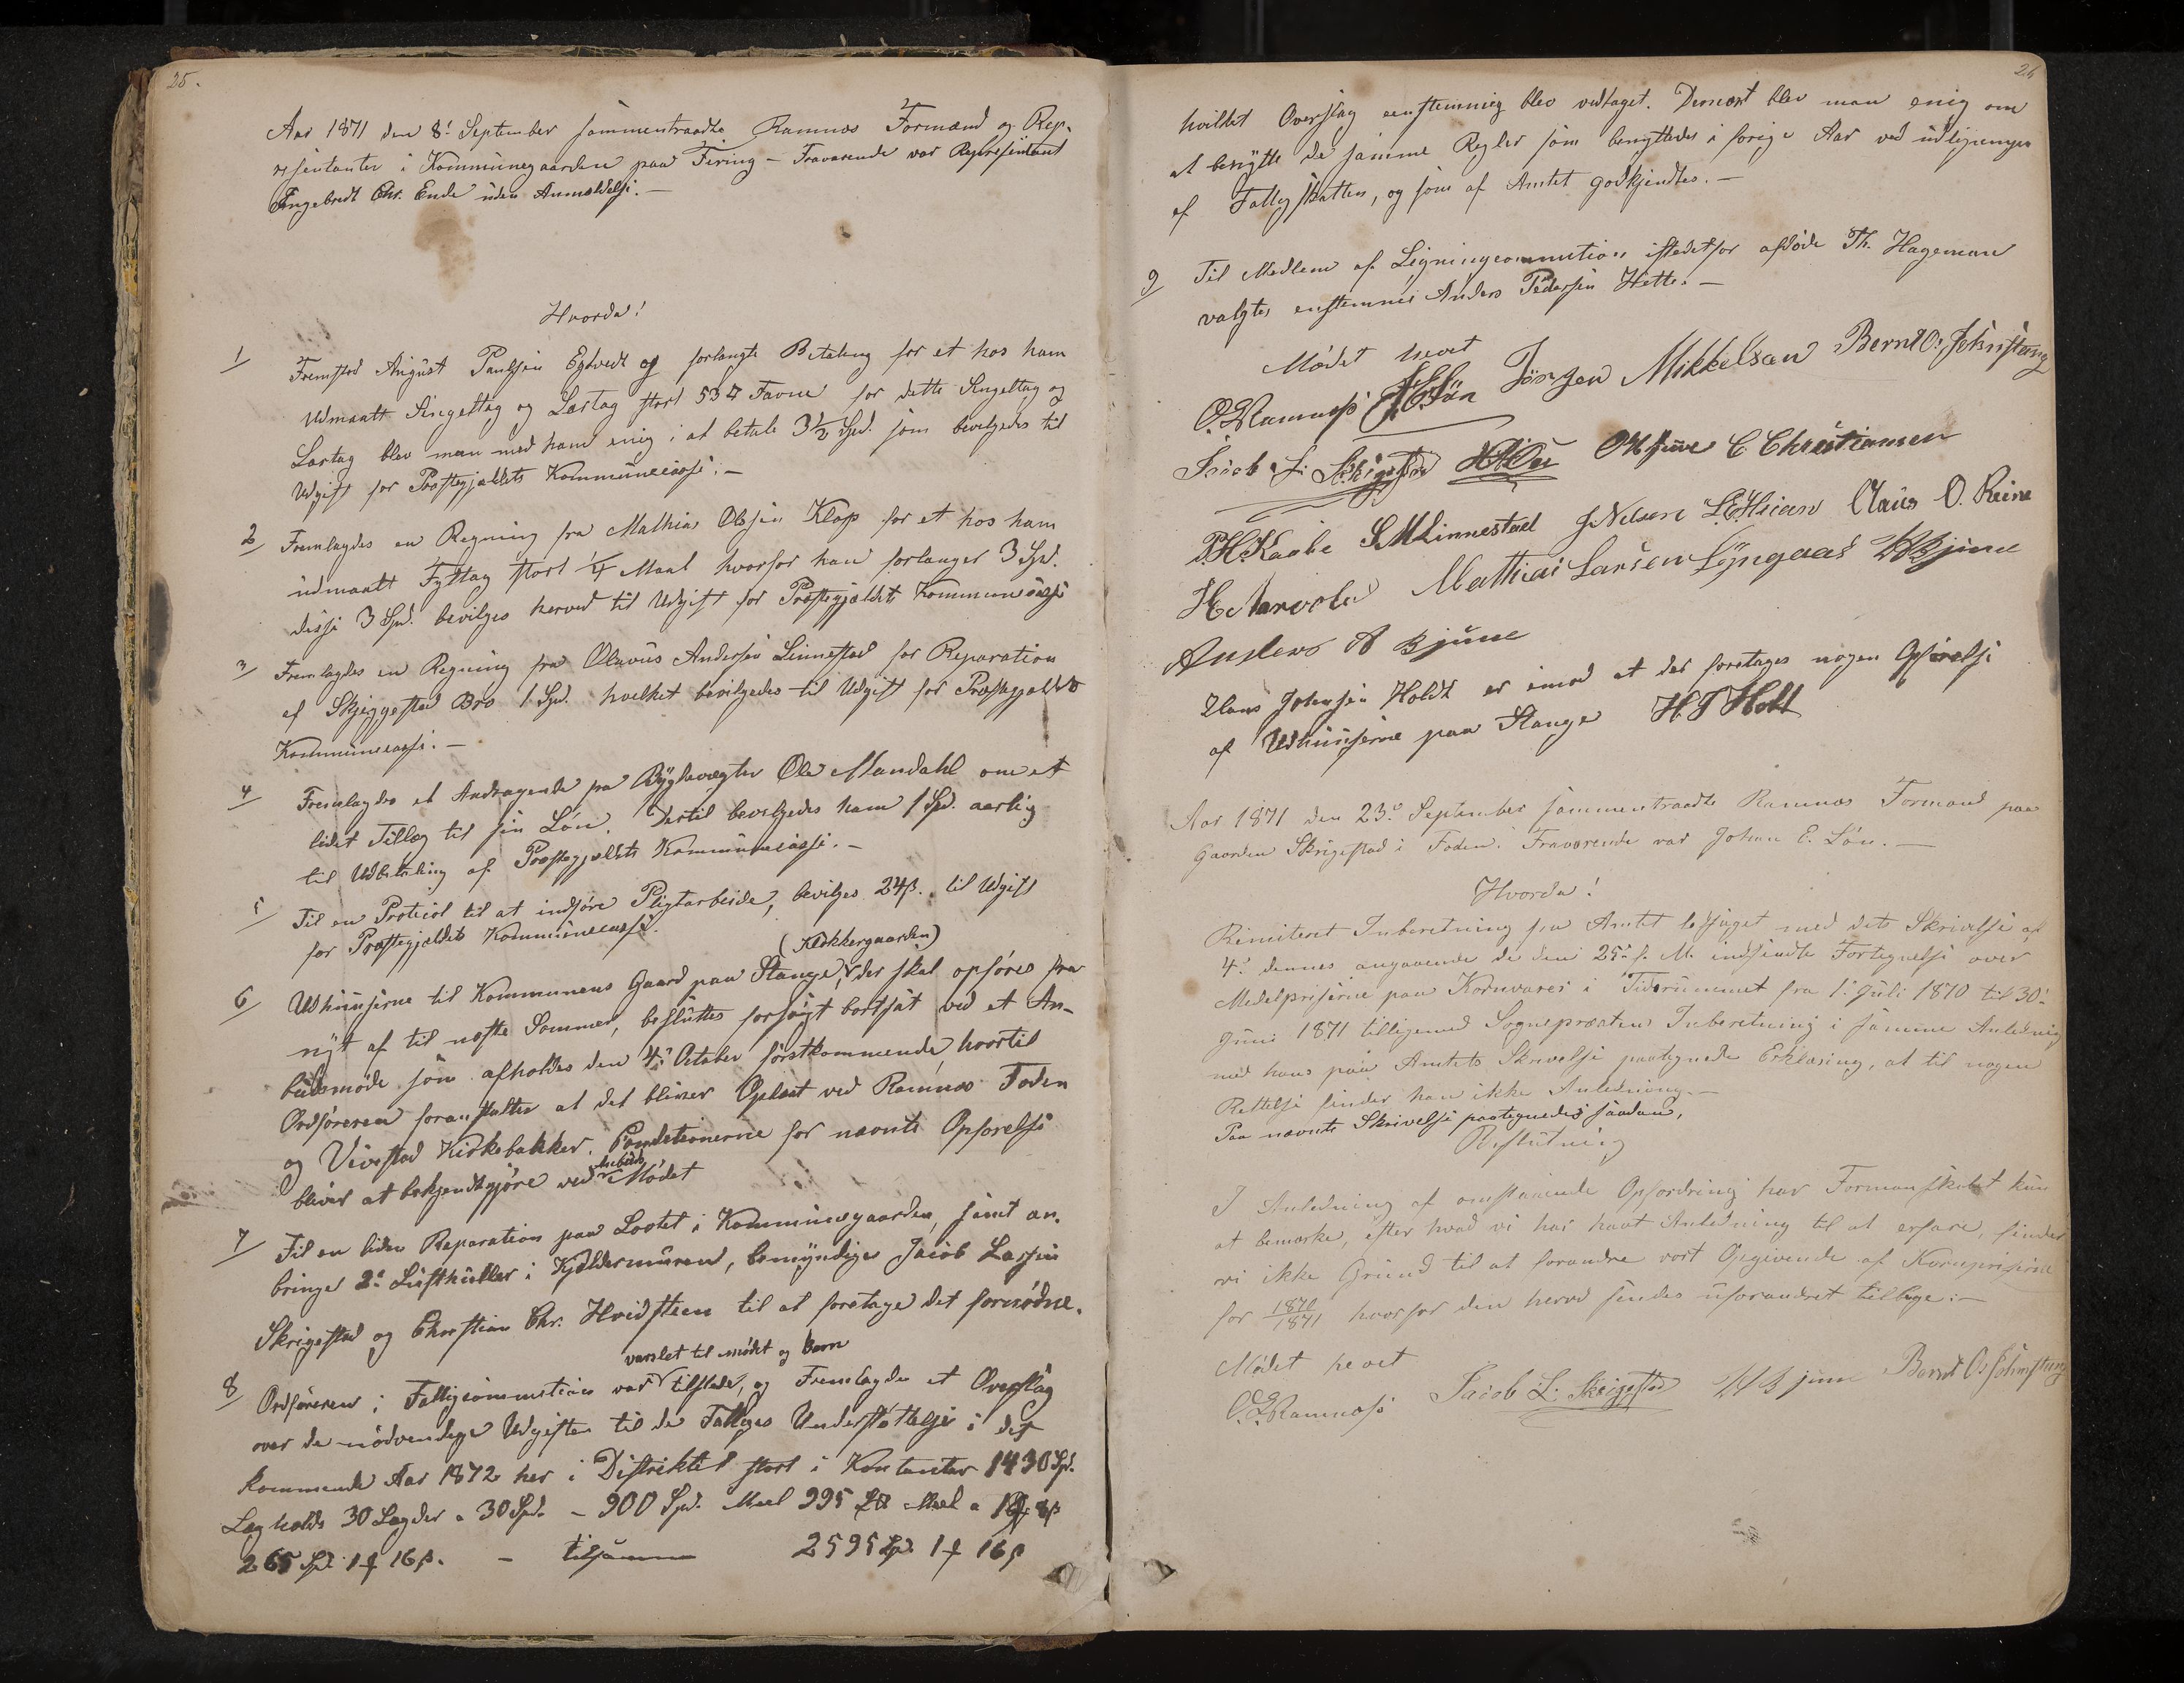 25.
Aar 1871 den 8de September sammentraadte Ramnæs Formænd og Rep-
resentanter i Kommunegaarden paa Firing – Fraværende var Representant
Engebret Chr. Ende uden Anmeldelse. –
Hvorda!
1/ Fremstod August Paulsen Egtvedt og forlangte Betaling for et hos ham
Udmaalt Singeltag og Lastag stort 534 Favne for dette Singeltag og
Lastag blev man med ham enig i at betale 3 1/2 Spd. som bevilgedes til
Udgift for Præstegjældets Kommunecasse. –
2/ Fremlagdes en Regning fra Mathias Olsen Klop for et hos ham
udmaalt Fyltag stort 1/4 Maal hvorfor han forlanger 3 Spd.
disse 3 Spd. bevilges herved til Udgift for Præstegjældets Kommunecasse
3/ Fremlagdes en Regning fra Olavus Andersen Linnestad for Reparation
af Skjeggestad Bro 1 Spd. hvilket bevilgedes til Udgift for Præstegjældets
Kommunecasse. –
4/ Fremlagdes et Andragende fra Bygdevægter Ole Mandahl om et
lidet Tillæg til sin Løn. Dertil bevilgedes ham 1 Spd. aarlig
til Udbetaling af Præstegjældets Kommunecasse. –
5/ Til en Protocol til at indføre Pligtarbeide, bevilges 24 ß. til Udgift
for Præstegjældets Kommunecasse.
(Klokkergaarden)
6/ Udhuuserne til Kommunens Gaard paa Stange, der skal opføres fra
nyt af til næste Sommer, besluttes forsøgt bortsat ved et An-
budsmøde som afholdes den 4de October førstkommende, hvortil
Ordføreren foranstalter at det bliver Oplæst ved Ramnæs Foden
og Vivestad Kirkebakker. Conditionerne for nævnte Opførelse
bliver at bekjendtgjøre ved Anbuds Mødet
7/ Til en liden Reparation paa Lostet i Kommunegaarden, samt an-
bringe 2de Lufthuller i Kjældermuren, bemyndiges Jacob Larsen
Skrigestad og Christian Chr. Hvidsteen til at foretage det fornødne.
varslet til mødet og dem
8/ Ordføreren i Fattigcommission var tilstede, og Fremlagdes et Overslag
over de nødvendige Udgifter til de Fattiges Understøttelse i det
kommende Aar 1872 her i Distriktet stort i Kontanter 1430 Spd.
Lægholds 30 Lægder a 30 Spd. – 900 Spd. Meel 995 Mæl a
265 Spd. 1 ƒ 16 ß. – tilsammen 2595 Spd. 1 ƒ 16 ß
26
hvilket Overslag eenstemmig blev vedtaget. Dernæst blev man enig om
at benytte de samme Regler som benyttedes i forige Aar ved udligningen
af Fattigskatten, og som af Amtet godkjendtes. –
9/ Til Medlem af Ligningcommution istedetfor afdøde Th. Hageman
valgtes enstemmi Anders Pedersen Hette. –
Mødet hævet
O. Ramnæss J E Løn Jørgen Mikkelsen Bernt O. Sehnstang
Jacob L. Skrigestad O H Fuve C Christiansen
P.H. Kaabe S M Linnestad J Nelsen Claus O. Reine
Mathias Larsen Lyngaas Bjune
Anders A Bjune
Hans Johnsen Holdt er imod at der foretages nogen Opførelse
af Udhuuserne paa Stange H J Holt
Aar 1871 den 23de September sammentraadte Ramnæs Formænd paa
Gaarden Skrigestad i Foden. Fraværende var Johan E. Løn. –
Hvorda!
Remiteret Inberetning fra Amtet ledsaget med dets Skrivelse af
4de dennes angaaende de den 25de f. M. indsendte Fortegnelse over
Medelpriserne paa Kornvarer i Tidsrummet fra 1de Juli 1870 til 30de
Juni 1871 tilligemed Sognepræsten Inberetning i samme Anledning
med hans paa Amtets Skrivelse paategnede Erklæring, at til nogen
Rettelse finder han ikke Anledning. –
Paa nævnte Skrivelse paategnedes saadan,
Beslutning
I Anledning af omstaaende Opfordring har Formanskabet kun
at bemærke, efter hvad vi har havt Anledning til at erfare, finder
vi ikke Grund til at forandre vort Opgivende af Kornpriserne
for 1870/1871 hvorfor den herved sendes uforandret tilbage. –
Mødet hevet
O. Ramnæss Jacob L. Skrigestad Bjune Bernt O. Sehnstang